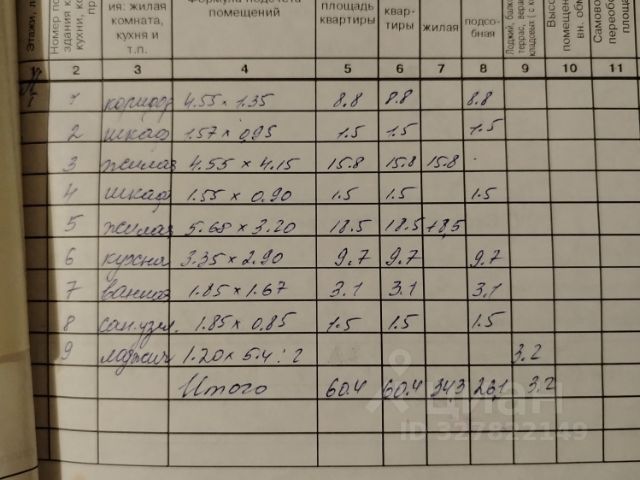 Этажи, л
Номер по
здания к
кухни, ко
ия: жилая
комната,
кухня и
т.п.
Формула подсчета
помещений
площадь
квартиры
квар-
тиры
жилая
подсо-
бная
Лоджий, балко
террас, вера
кладовых ( с к
Высо
помещен
вн. обм
Самово
переобо
площа
2 3 4 5 6 7 8 9 10 11
1 коридор 4.55 × 1.35 8.8 8.8 8.8
2 шкаф 1.57 × 0.95 1.5 1.5 1.5
3 жилая 4.55 × 4.15 15.8 15.8 15.8
4 шкаф 1.55 × 0.90 1.5 1.5 1.5
5 жилая 5.68 × 3.20 18.5 18.5 18,5
6 кухня 3.35 × 2.90 9.7 9.7 9.7
7 ванная 1.85 × 1.67 3.1 3.1 3.1
8 сан.узел. 1.85 × 0.85 1.5 1.5 1.5
9 1.20 × 5.4 : 2 3.2
Итого 60.4 60.4 34,3 26,1 3.2
циан
ID 327822149